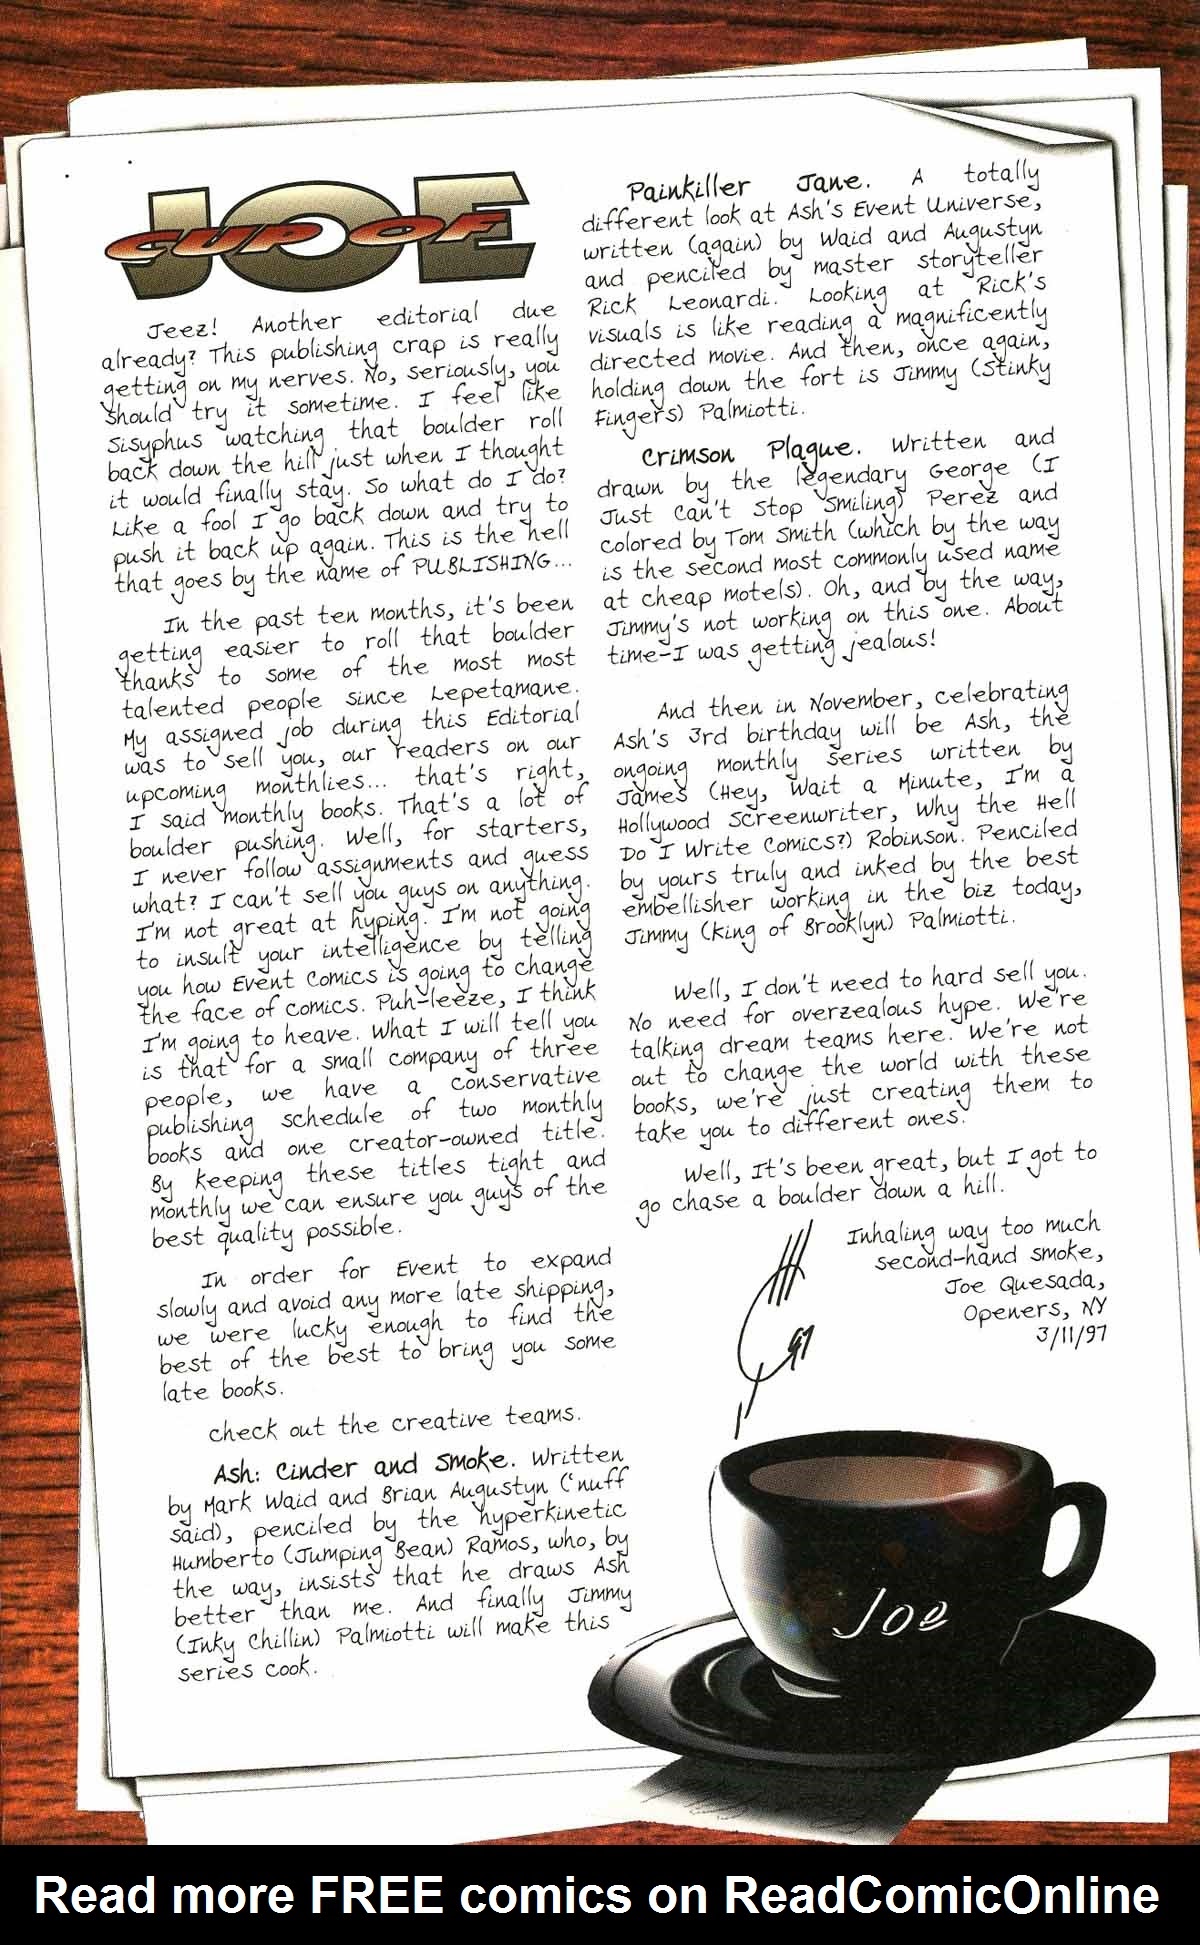 CUP OF JOE
Jeez! Another editorial due
already? This publishing crap is really
getting on my nerves. No, seriously, you
should try it sometime. I feel like
Sisyphus watching that boulder roll
back down the hill just when I thought
it would finally stay. So what do I do?
Like a fool I go back down and try to
push it back up again. This is the hell
that goes by the name of PUBLISHING...
In the past ten months, it's been
getting easier to roll that boulder
thanks to some of the most most
talented people since Lepetamane.
My assigned job during this Editorial
was to sell you, our readers on our
upcoming monthlies... that's right,
I said monthly books. That's a lot of
boulder pushing. Well, for starters,
I never follow assignments and guess
what? I can't sell you guys on anything.
I'm not great at hyping. I'm not going
to insult your intelligence by telling
you how Event Comics is going to change
the face of comics. Puh-leeze, I think
I'm going to heave. What I will tell you
is that for a small company of three
people, we have a conservative
publishing schedule of two monthly
books and one creator-owned title.
By keeping these titles tight and
monthly we can ensure you guys of the
best quality possible.
In order for Event to expand
slowly and avoid any more late shipping,
we were lucky enough to find the
best of the best to bring you some
late books.
check out the creative teams.
Ash: Cinder and Smoke. Written
by Mark Waid and Brian Augustyn ('nuff
said), penciled by the hyperkinetic
Humberto (Jumping Bean) Ramos, who, by
the way, insists that he draws Ash
better than me. And finally Jimmy
(Inky Chillin) Palmiotti will make this
series cook.
Painkiller Jane. A totally
different look at Ash's Event Universe,
written (again) by Waid and Augustyn
and penciled by master storyteller
Rick Leonardi. Looking at Rick's
visuals is like reading a magnificently
directed movie. And then, once again,
holding down the fort is Jimmy (Stinky
Fingers) Palmiotti.
Crimson Plague. Written and
drawn by the legendary George (I
Just Can't Stop Smiling) Perez and
colored by Tom Smith (which by the way
is the second most commonly used name
at cheap motels). Oh, and by the way,
Jimmy's not working on this one. About
time-I was getting jealous!
And then in November, celebrating
Ash's 3rd birthday will be Ash, the
ongoing monthly series written by
James (Hey, Wait a Minute, I'm a
Hollywood Screenwriter, Why the Hell
Do I Write Comics?) Robinson. Penciled
by yours truly and inked by the best
embellisher working in the biz today,
Jimmy (King of Brooklyn) Palmiotti.
Well, I don't need to hard sell you.
No need for overzealous hype. We're
talking dream teams here. We're not
out to change the world with these
books, we're just creating them to
take you to different ones.
Well, It's been great, but I got to
go chase a boulder down a hill.
Inhaling way too much
second-hand smoke,
Joe Quesada,
Openers, NY
3/11/97
Joe
Read more FREE comics on ReadComicOnline